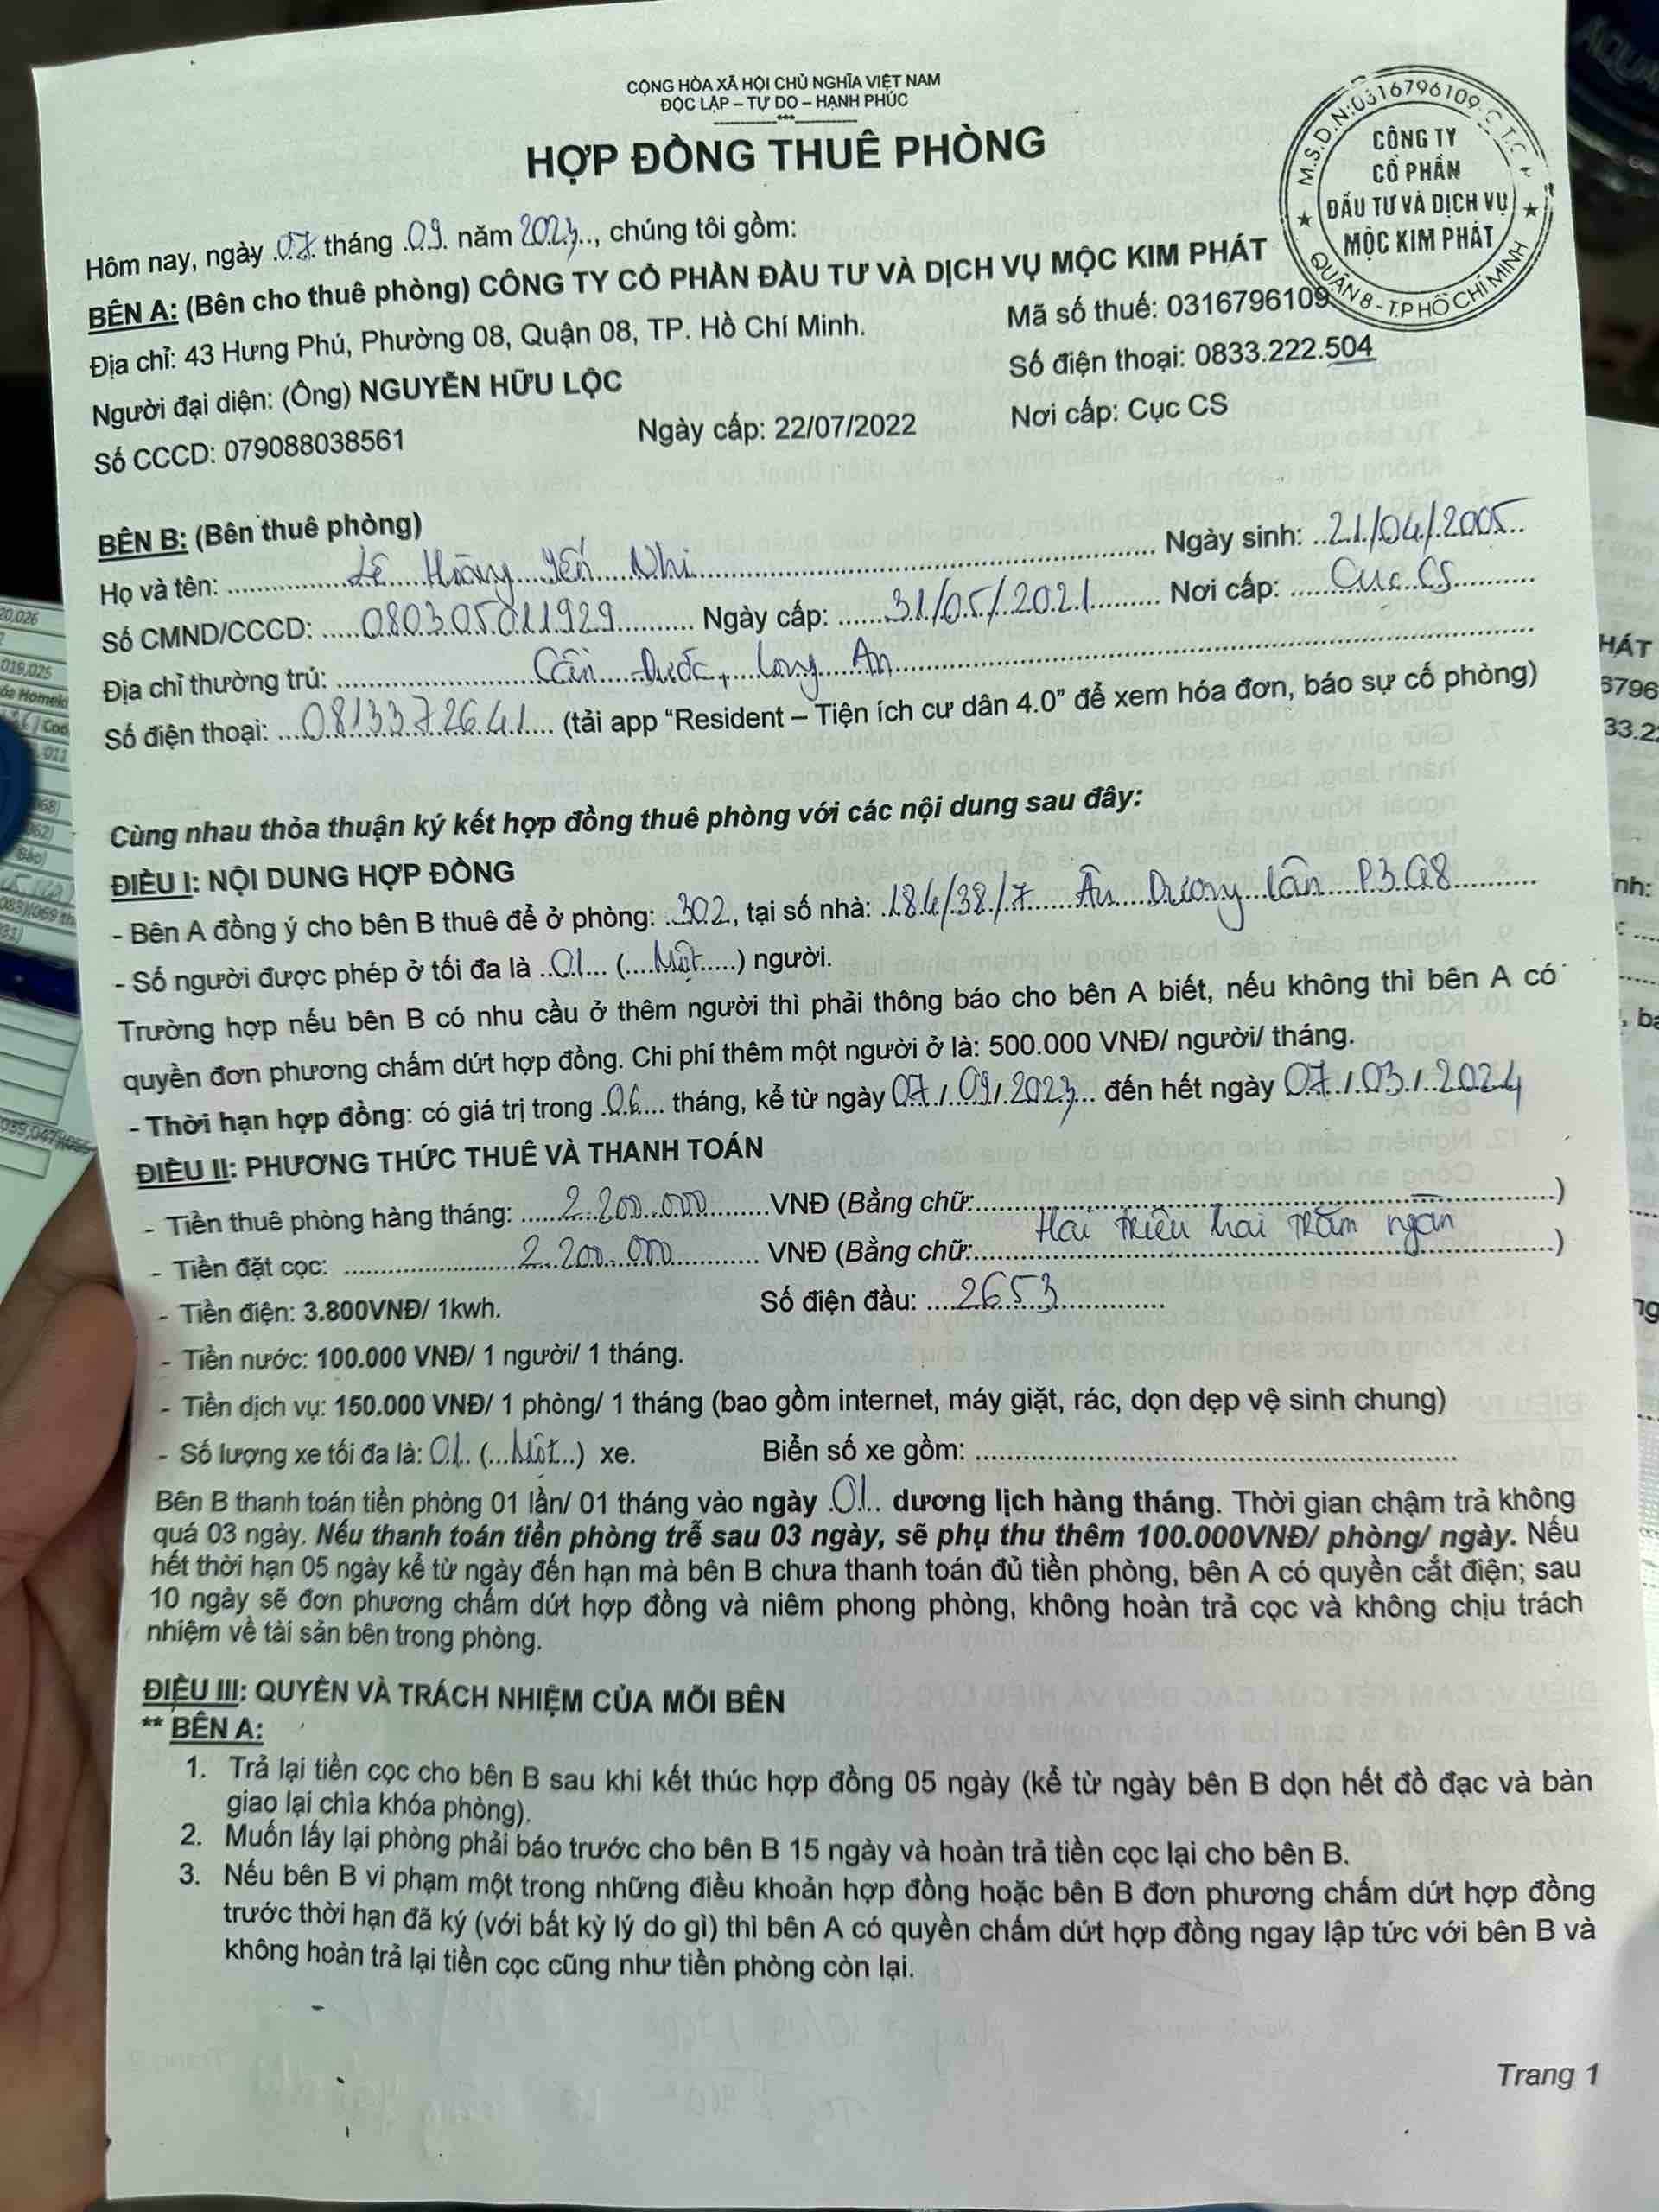 CỘNG HÒA XÃ HỘI CHỦ NGHĨA VIỆT NAM
ĐỘC LẬP – TỰ DO – HẠNH PHÚC
HỢP ĐỒNG THUÊ PHÒNG
M.S.D.N:0316796109-C.T.C
CÔNG TY
CỔ PHẦN
ĐẦU TƯ VÀ DỊCH VỤ
MỘC KIM PHÁT
QUẬN 8 - T.P HỒ CHÍ MINH
Hôm nay, ngày 07 tháng 09 năm 2023, chúng tôi gồm:
BÊN A: (Bên cho thuê phòng) CÔNG TY CỔ PHẦN ĐẦU TƯ VÀ DỊCH VỤ MỘC KIM PHÁT
Địa chỉ: 43 Hưng Phú, Phường 08, Quận 08, TP. Hồ Chí Minh. Mã số thuế: 0316796109
Người đại diện: (Ông) NGUYỄN HỮU LỘC Số điện thoại: 0833.222.504
Số CCCD: 079088038561 Ngày cấp: 22/07/2022 Nơi cấp: Cục CS
BÊN B: (Bên thuê phòng)
Họ và tên: Lê Hoàng Yến Nhi Ngày sinh: 21/04/2005
Số CMND/CCCD: 080305011929 Ngày cấp: 31/05/2021 Nơi cấp: Cục CS
Địa chỉ thường trú: Cần Đước, Long An
Số điện thoại: 0813372641 (tải app “Resident – Tiện ích cư dân 4.0” để xem hóa đơn, báo sự cố phòng)
Cùng nhau thỏa thuận ký kết hợp đồng thuê phòng với các nội dung sau đây:
ĐIỀU I: NỘI DUNG HỢP ĐỒNG
- Bên A đồng ý cho bên B thuê để ở phòng: 302, tại số nhà: 184/38/7 Âu Dương Lân P3 Q8
- Số người được phép ở tối đa là 01 (Một) người.
Trường hợp nếu bên B có nhu cầu ở thêm người thì phải thông báo cho bên A biết, nếu không thì bên A có
quyền đơn phương chấm dứt hợp đồng. Chi phí thêm một người ở là: 500.000 VNĐ/ người/ tháng.
- Thời hạn hợp đồng: có giá trị trong 06 tháng, kể từ ngày 07/09/2023 đến hết ngày 07/03/2024
ĐIỀU II: PHƯƠNG THỨC THUÊ VÀ THANH TOÁN
- Tiền thuê phòng hàng tháng: 2.200.000 VNĐ (Bằng chữ: )
Hai triệu hai trăm ngàn
- Tiền đặt cọc: 2.200.000 VNĐ (Bằng chữ: )
- Tiền điện: 3.800VNĐ/ 1kwh. Số điện đầu: 2653
- Tiền nước: 100.000 VNĐ/ 1 người/ 1 tháng.
- Tiền dịch vụ: 150.000 VNĐ/ 1 phòng/ 1 tháng (bao gồm internet, máy giặt, rác, dọn dẹp vệ sinh chung)
- Số lượng xe tối đa là: 01 (Một) xe. Biển số xe gồm:
Bên B thanh toán tiền phòng 01 lần/ 01 tháng vào ngày 01 dương lịch hàng tháng. Thời gian chậm trả không
quá 03 ngày. Nếu thanh toán tiền phòng trễ sau 03 ngày, sẽ phụ thu thêm 100.000VNĐ/ phòng/ ngày. Nếu
hết thời hạn 05 ngày kể từ ngày đến hạn mà bên B chưa thanh toán đủ tiền phòng, bên A có quyền cắt điện; sau
10 ngày sẽ đơn phương chấm dứt hợp đồng và niêm phong phòng, không hoàn trả cọc và không chịu trách
nhiệm về tài sản bên trong phòng.
ĐIỀU III: QUYỀN VÀ TRÁCH NHIỆM CỦA MỖI BÊN
** BÊN A:
1. Trả lại tiền cọc cho bên B sau khi kết thúc hợp đồng 05 ngày (kể từ ngày bên B dọn hết đồ đạc và bàn
giao lại chìa khóa phòng).
2. Muốn lấy lại phòng phải báo trước cho bên B 15 ngày và hoàn trả tiền cọc lại cho bên B.
3. Nếu bên B vi phạm một trong những điều khoản hợp đồng hoặc bên B đơn phương chấm dứt hợp đồng
trước thời hạn đã ký (với bất kỳ lý do gì) thì bên A có quyền chấm dứt hợp đồng ngay lập tức với bên B và
không hoàn trả lại tiền cọc cũng như tiền phòng còn lại.
Trang 1